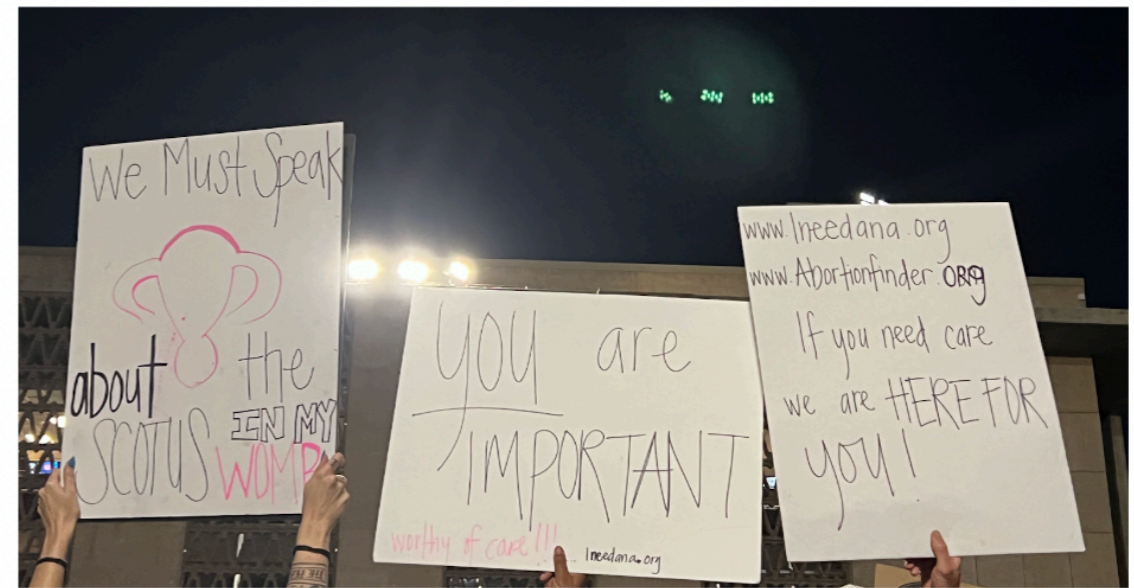 We Must Speak
about the
SCOTUS IN MY
WOMB
you are
IMPORTANT
worthy of care!!!
Ineedana.org
www.Ineedana.org
www.Abortionfinder.ORG
If you need care
we are HERE FOR
you!